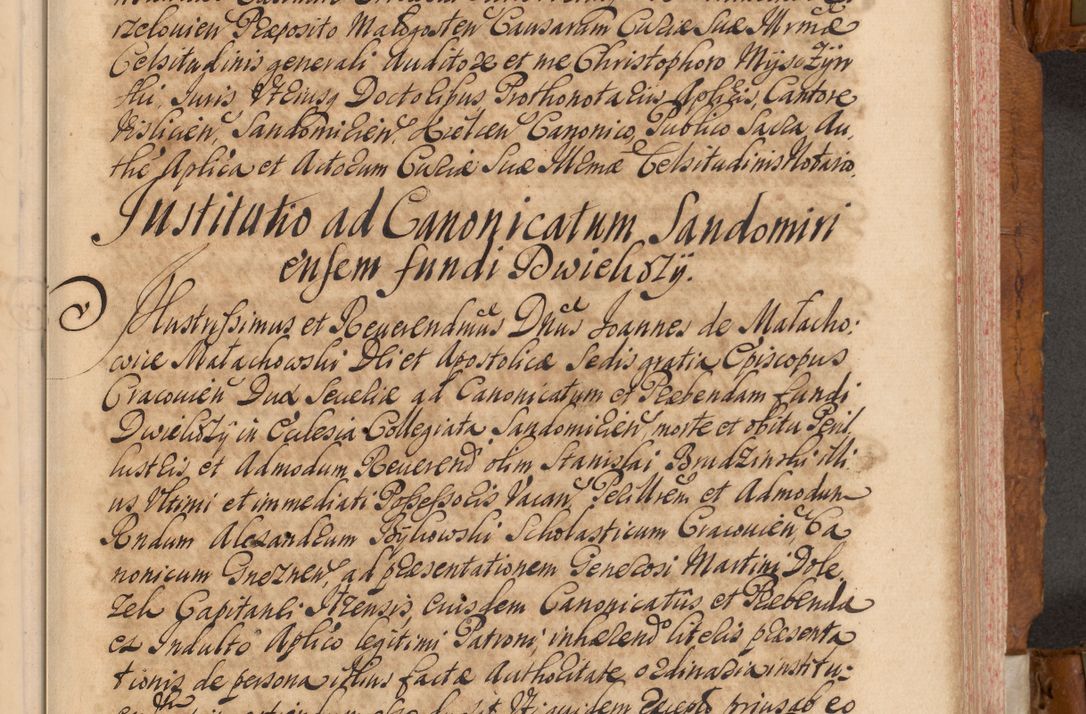 rzelovien Præposito Malogosten Causarum Curiæ Suæ Illrmæ
Celsitudinis generali Auditore et me Christophoro Mysczyn
ski, Juris Utriusq Doctoribus Prothonotariis Aplicis, Cantore
Vislicien, Sandomirien, Kielcen Canonico, Publico Sacra Au,
the Aplica et Actorum Curiæ Suæ Illrmæ Celsitudinis Notario.
Institutio ad Canonicatum Sandomiri
ensem fundi Dwiekozÿ.
Illustrissimus et Reverendmus Dnus Joannes de Malacho:
wice Malachowski Dei et Apostolicæ Sedis gratia Episcopus
Cracovien Dux Severiæ ad Canonicatum et Præbendam fundi
Dwiekozÿ in Ecclesia Collegiata Sandomirien, morte et obitu Peril
lustris et Admodum Reverend olim Stanislai Brudzinski illi
us Ultimi et immediati Possessoris Vacan Perillrem et Admodum
Rndum Alexandrum Bÿkowski Scholasticum Cracovien, Ca
nonicum Gneznen, ad præsentationem Generosi Martini Dole
zek Capitanei Itzensis, eiusdem Canonicatus et Præbenda
ex Indulto Aplico legitimi Patroni, inhærend literis præsenta
tionis de persona illius factæ Authoritate ordinaria institu: